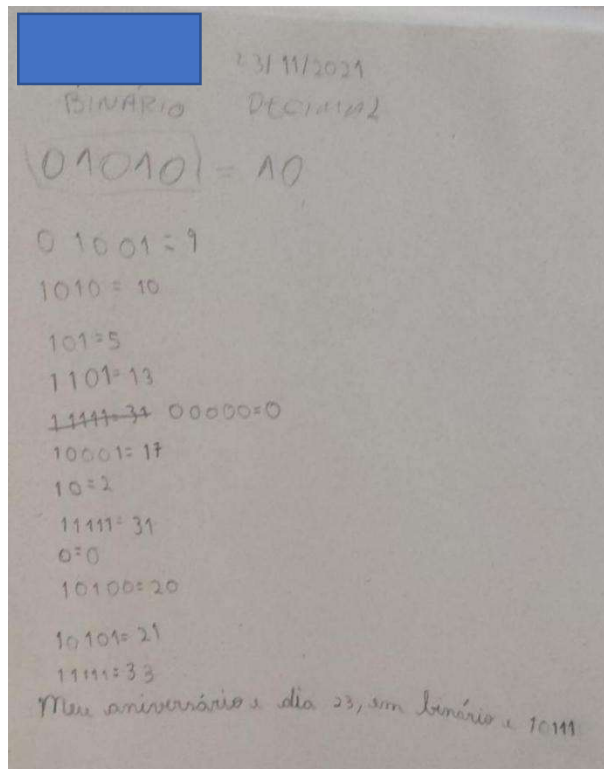 23/11/2021
BINÁRIO DECIMAL
01010 = 10
01001=9
1010 = 10
101=5
1101=13
11111=31 00000=0
10001=17
10=2
11111=31
0=0
10100=20
10101=21
11111=33
Meu aniversário e dia 23, em binário e 10111